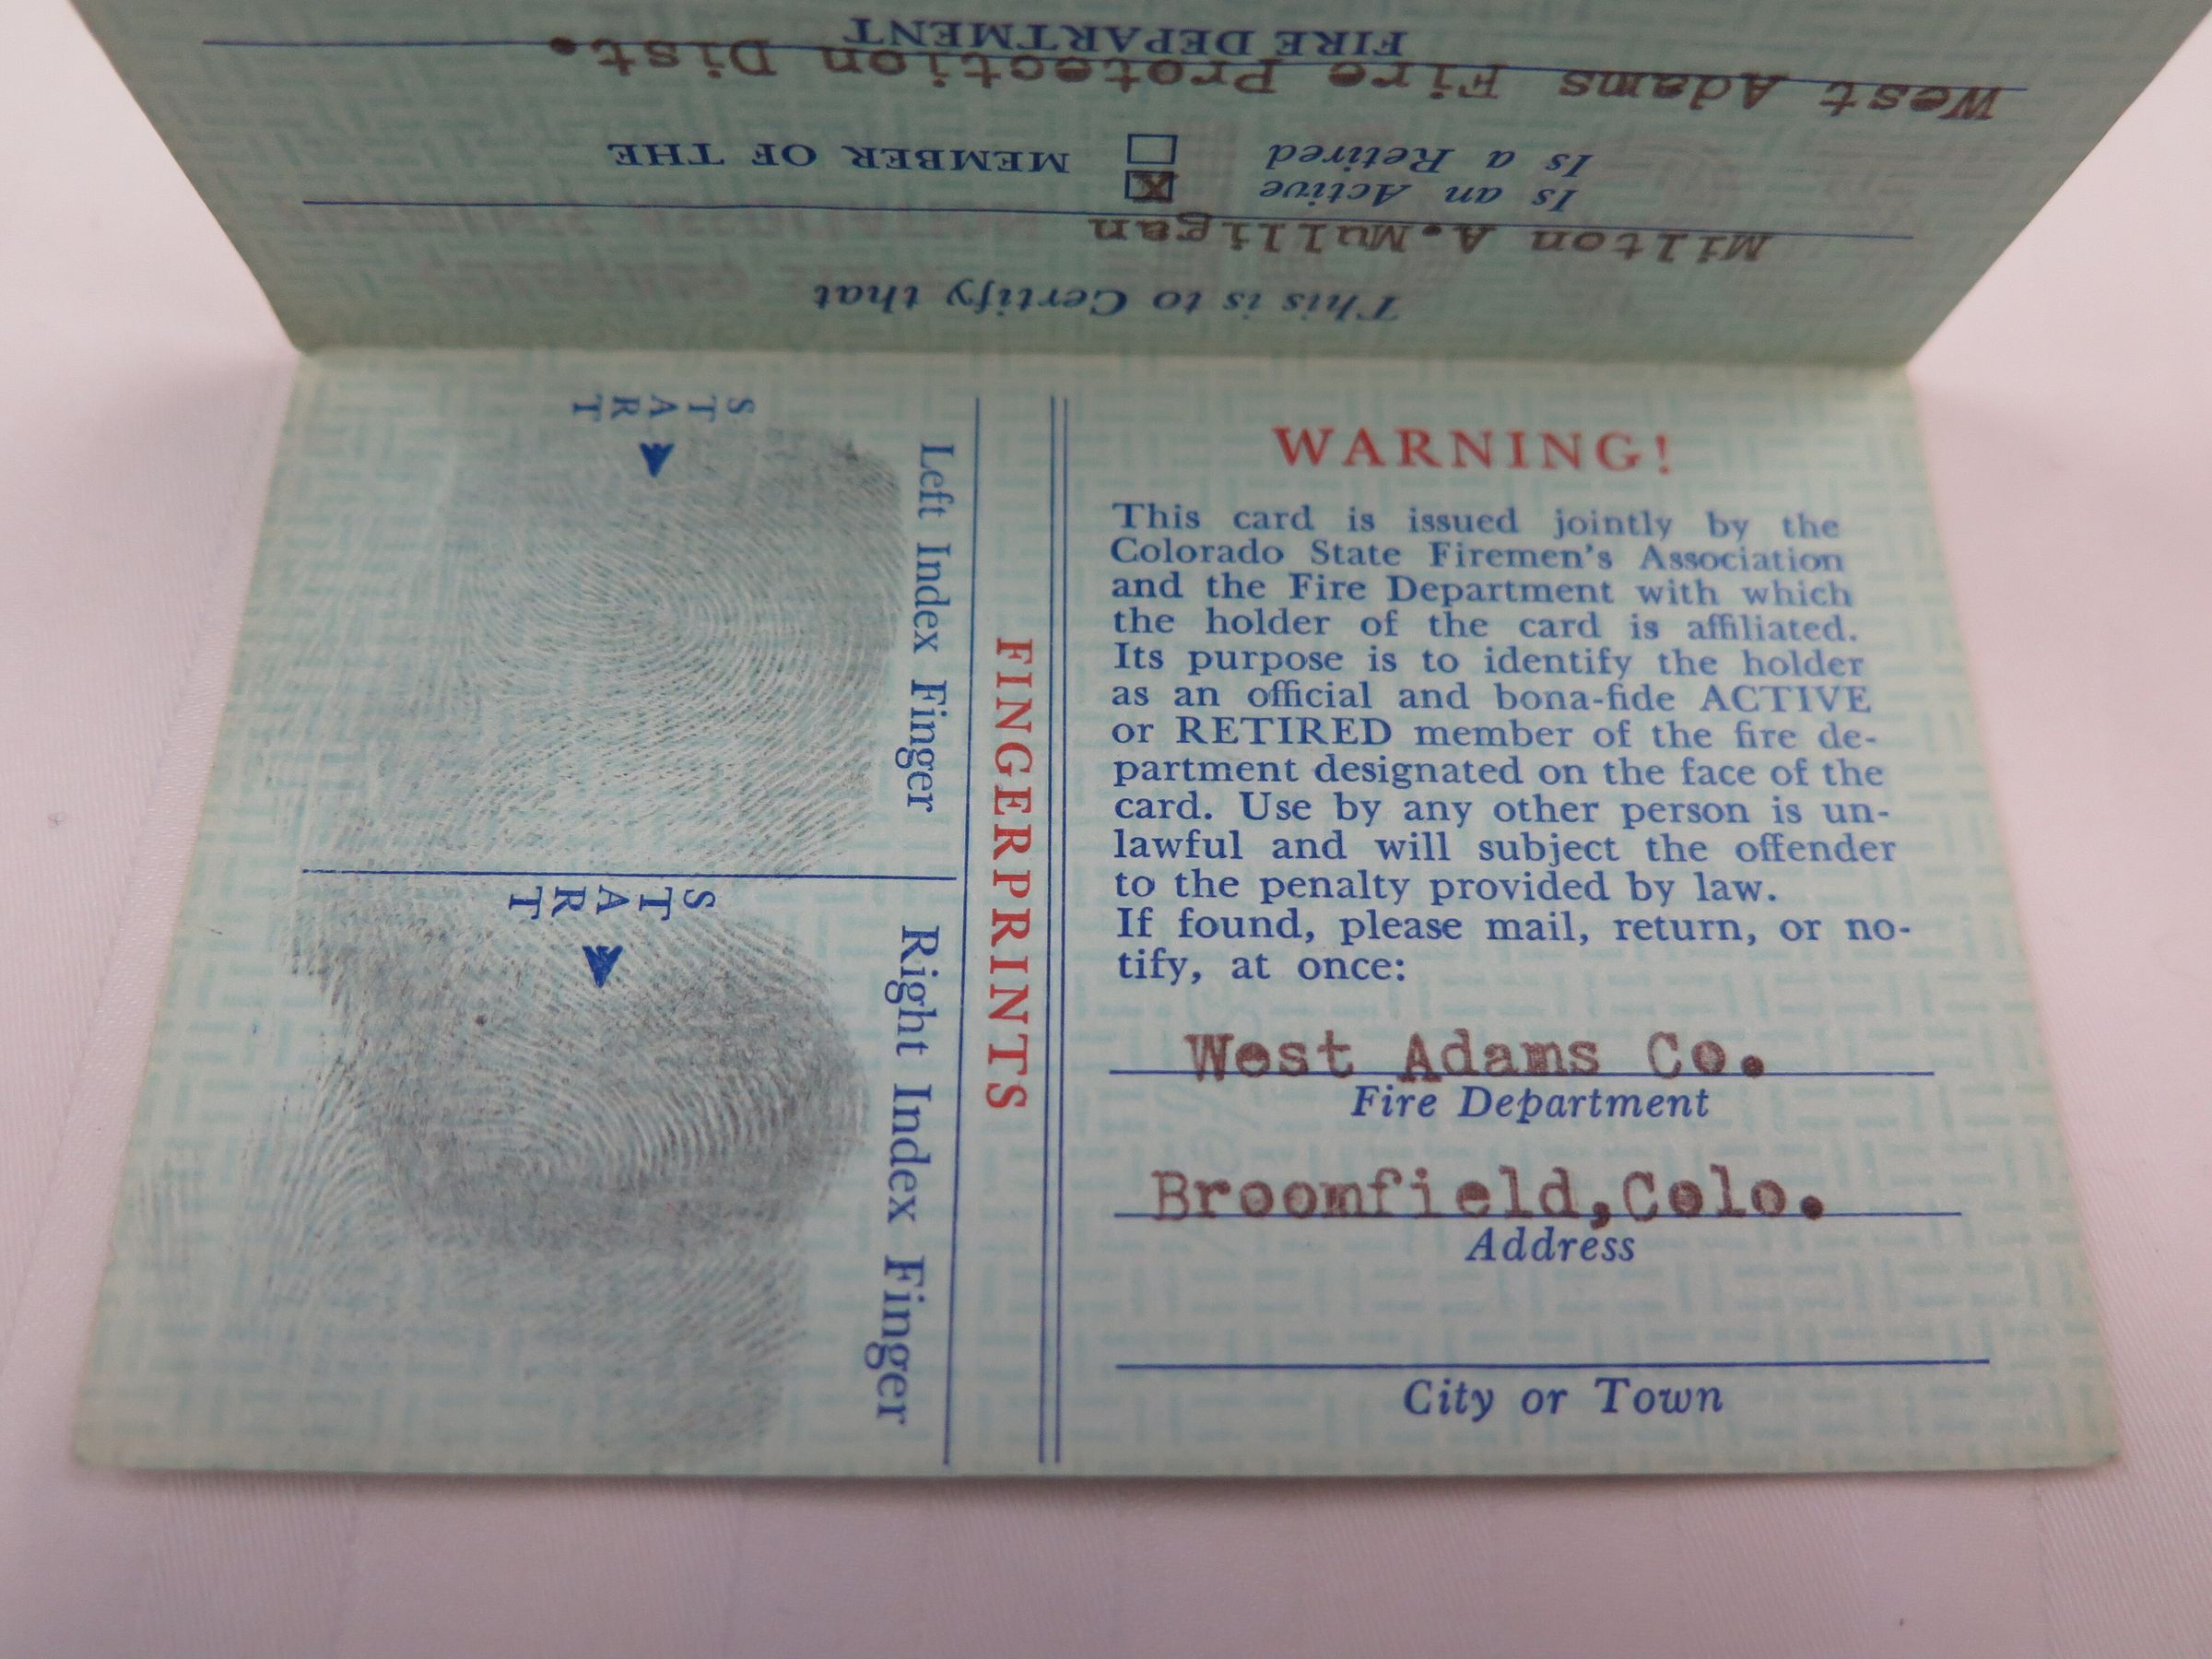 This is to Certify that
Milton A.Mulligan
Is an Active
Is a Retired
MEMBER OF THE
West Adams Fire Protection Dist.
FIRE DEPARTMENT
START
Left Index Finger
START
Right Index Finger
FINGERPRINTS
WARNING!
This card is issued jointly by the
Colorado State Firemen's Association
and the Fire Department with which
the holder of the card is affiliated.
Its purpose is to identify the holder
as an official and bona-fide ACTIVE
or RETIRED member of the fire de-
partment designated on the face of the
card. Use by any other person is un-
lawful and will subject the offender
to the penalty provided by law.
If found, please mail, return, or no-
tify, at once:
West Adams Co.
Fire Department
Broomfield,Colo.
Address
City or Town